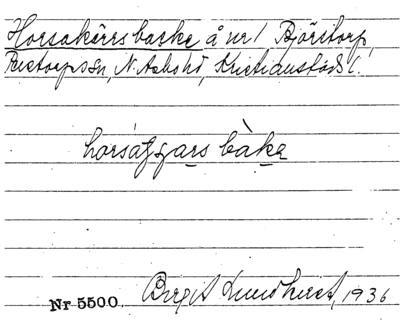 Horsakärrsbacke å nr 1 Björstorp,
Ristorps sn, N. Åsbohd, Kristianstads l.
horsaʒʒars bàka
Nr 5500. Birgit Lundkvist, 1936